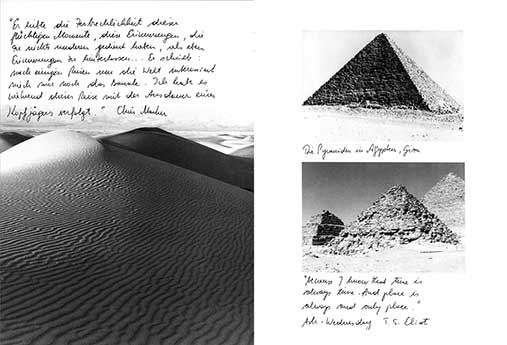 "Er liebte die Zerbrechlichkeit dieser
flüchtigen Momente, diese Erinnerungen, die
zu nichts anderem gedient haben, als eben
Erinnerungen zu hinterlassen... Er schrieb:
nach einigen Reisen um die Welt interessiert
mich nur noch das Banale. Ich habe es
während dieser Reise mit der Ausdauer eines
Kopfjägers verfolgt." Chris Marker
Die Pyramiden in Ägypten, Giza
"Because I know that time is
always time. And place is
always and only place."
Ash-Wednesday T.S. Eliot